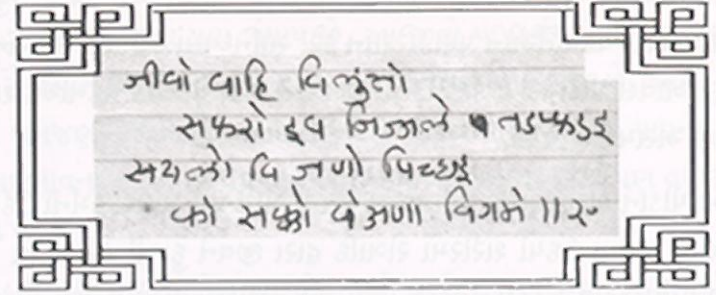 जीवो वाहि विलुत्तो
सफरो इव निज्जले तडप्फडइ
सयलो वि जणो पिच्छइ
को सक्को वेअणा विगमे ॥२०